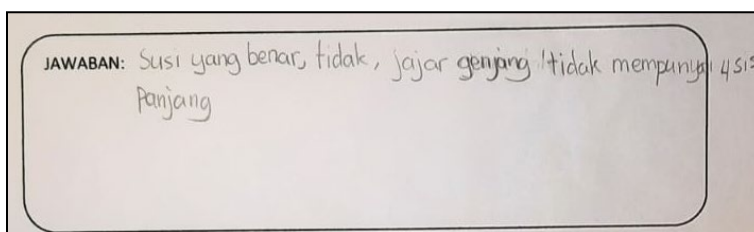 JAWABAN: Susi yang benar, tidak, jajar genjang tidak mempunyai 4 sis
Panjang